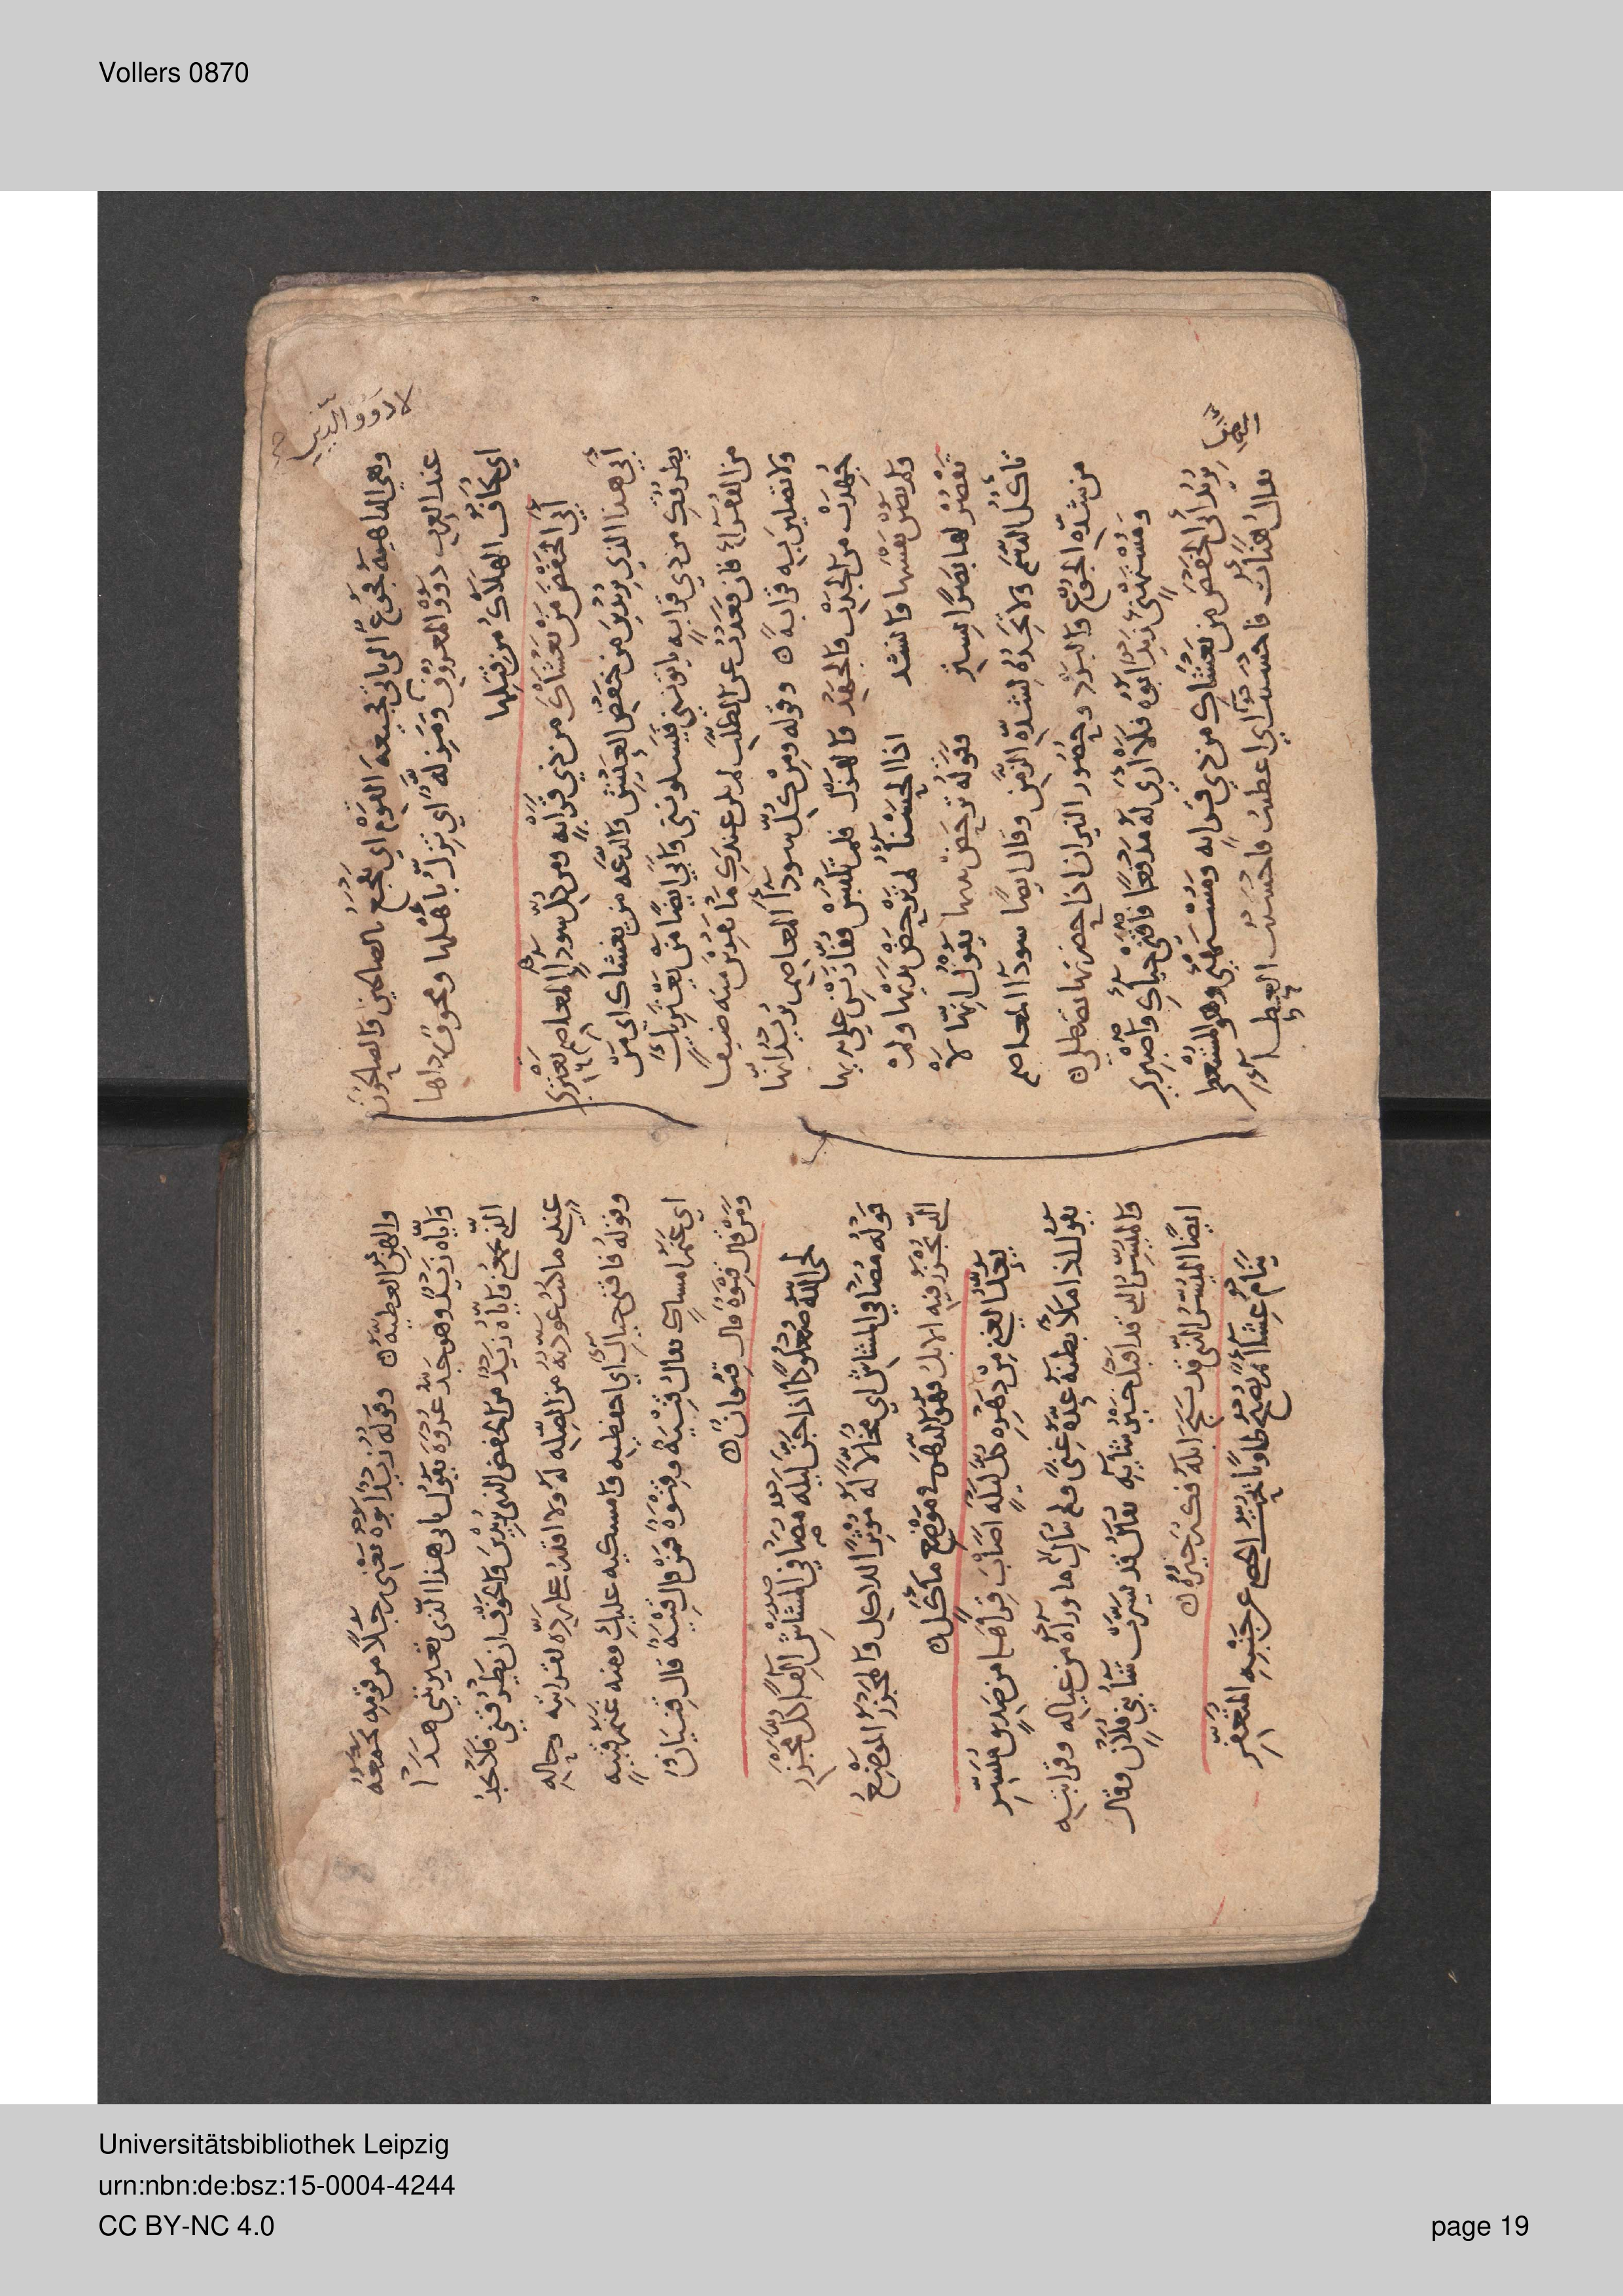 Vollers 0870
وهي الداهية تجوع الى ياتي تجيعه القوم اي تفجع بالصالحين والصالحون
لادوو الدنيا
عند العرب ذوو المعروف ومزلة اي تزل باهلها ومخوف رداها
اي يخاف الهلاك من قبلها
ابى الخفض من يغشاك من ذي قرابة ومن كل سوداء المعاصم تعتري
ابى هذا الذي تريدين من خفض العيش والدعة من يغشاك اي من
يطرقك من ذي قرابة ياتونني فيسلونني وابى ايضا من يعتريك
من الفقراء فان قعدت عن الطلب لم يكن عندك ما تقرين منه ضيفا
ولا تصلين به قرابة وقوله ومن كل سوداء المعاصم يريد انها
جهدت من الجدب والجهد والهزل
ولم يصن نفسها وانشد اذا الحسناء لم ترحض يديها ولم
تقصر لها بصرا بستر فقوله ترحض يديها يقول انها لا
تاكل الدسم ولا تجده لشدة الزمن وقال ايضا سوداء المعاصم
من شدة الجوع والبرد وحضور النيران اذا حضرتها تصطلي
ومستهنئ زيد ابوه فلا ارى له مدفعا فاقني حياءك واصبري
يريد ابى الخفض من يغشاك من ذي قرابة ومستهنئ وهو المستعطي
يقال هنات فاحسنت اي اعطيت فاحسنت العطية
والهنئ العطية وقوله زيد ابوه يعني رجلا من قومه يجمعه
واياه زيد وهو جد عروة يقول ابى هذا الذي تغيرينني هذا
الذي يجمعني واياه زيد من الخفض الذي تريدين والخوف ان يطرقني فلا يجد
عندي ما كنت عودته من الصلة له ولا اقدر على رده لقرابته وحاله
وقوله فاقني حياءك اي احفظيه وامسكيه عليك ومنه غنم قنية
اي غنم امساك يقال قنية وقنوة فمن قال قنية قال قنيان
ومن قال قنوة قال قنوان
لحى الله صعلوكا اذا جن ليله مصافي المشاش الفا كل مجزر
قوله مصافي المشاش اي مخالا له موثرا للاكل والمجزر الموضع
الذي تجزر فيه الابل
يعد الغنى من دهره كل ليلة اصاب قراها من صديق ميسر
يقول اذا ملا بطنه عده غنى ولم يبال ما وراءه من عياله وقرابته
والميسر الذي قد اقبل خير شايه يقال قد يسرت شاء بني فلان وقال
ايضا الميسر الذي قد نتجت ابله فكثر خيره
ينام عشاء ثم يصبح طاويا يحت الحصى عن جنبه المتعفر
Universitätsbibliothek Leipzig
urn:nbn:de:bsz:15-0004-4244
CC BY-NC 4.0
page 19